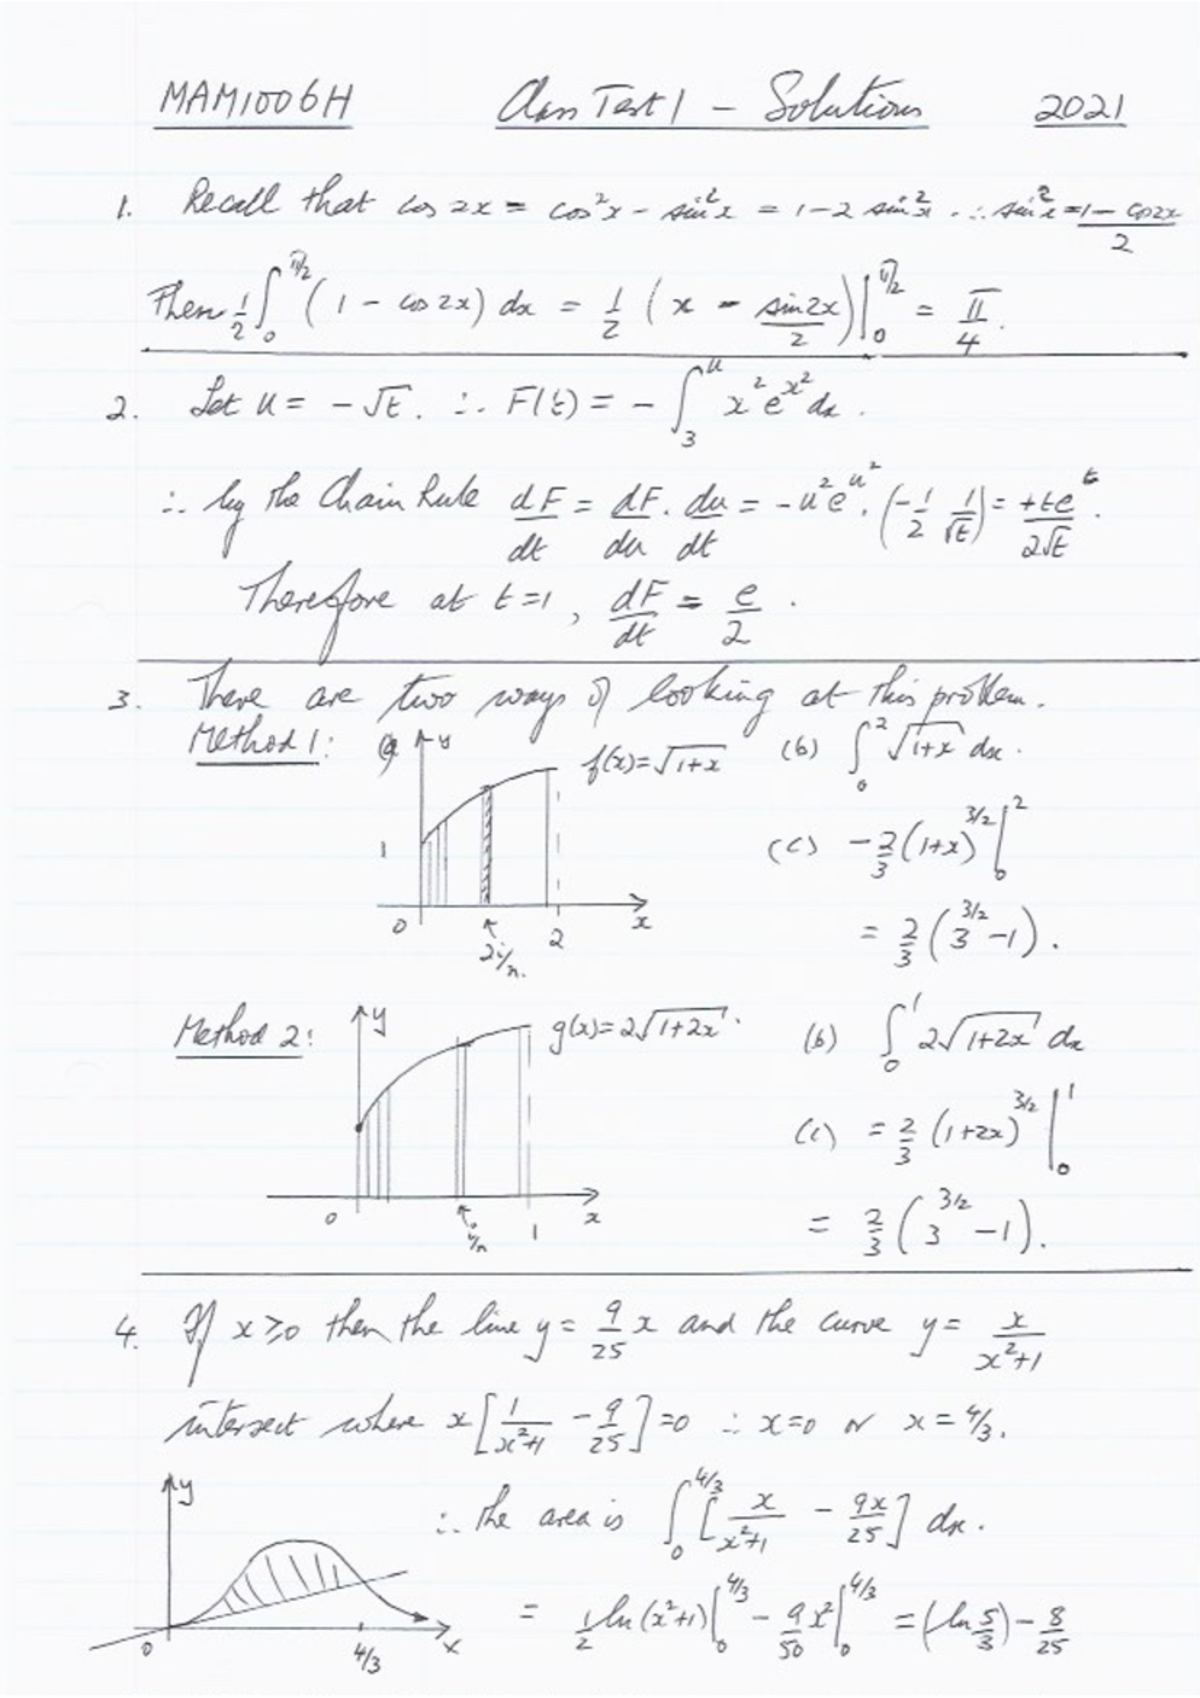 MAM1006H Class Test 1 – Solutions 2021
1. Recall that cos 2x = cos²x – sin²x = 1 – 2 sin²x ∴ sin²x = (1 – cos2x)/2
Then ½ ∫₀^{π/2} (1 – cos 2x) dx = ½ (x – sin2x/2)|₀^{π/2} = π/4.
2. Let u = –√t. ∴ F(t) = – ∫₃^u x² e^{x²} dx.
∴ by the Chain Rule dF/dt = dF/du . du/dt = –u² e^{u²} . (–1/2 1/√t) = +te^t/2√t.
Therefore at t=1, dF/dt = e/2.
3. There are two ways of looking at this problem.
Method 1: (a) y f(x)=√(1+x) (b) ∫₀² √(1+x) dx.
1 (c) = 2/3 (1+x)^{3/2} |₀²
0 2i/n. 2 x = 2/3 (3^{3/2} – 1).
Method 2: y g(x)=2√(1+2x). (b) ∫₀¹ 2√(1+2x) dx
(c) = 2/3 (1+2x)^{3/2} |₀¹
0 i/n 1 x = 2/3 (3^{3/2} – 1).
4. If x≥0 then the line y = 9/25 x and the curve y = x/(x²+1)
intersect where x[1/(x²+1) – 9/25] = 0 ∴ x=0 or x = 4/3.
y ∴ the area is ∫₀^{4/3} [x/(x²+1) – 9x/25] dx.
0 4/3 x = ½ ln(x²+1)|₀^{4/3} – 9/50 x²|₀^{4/3} = (ln 5/3) – 8/25